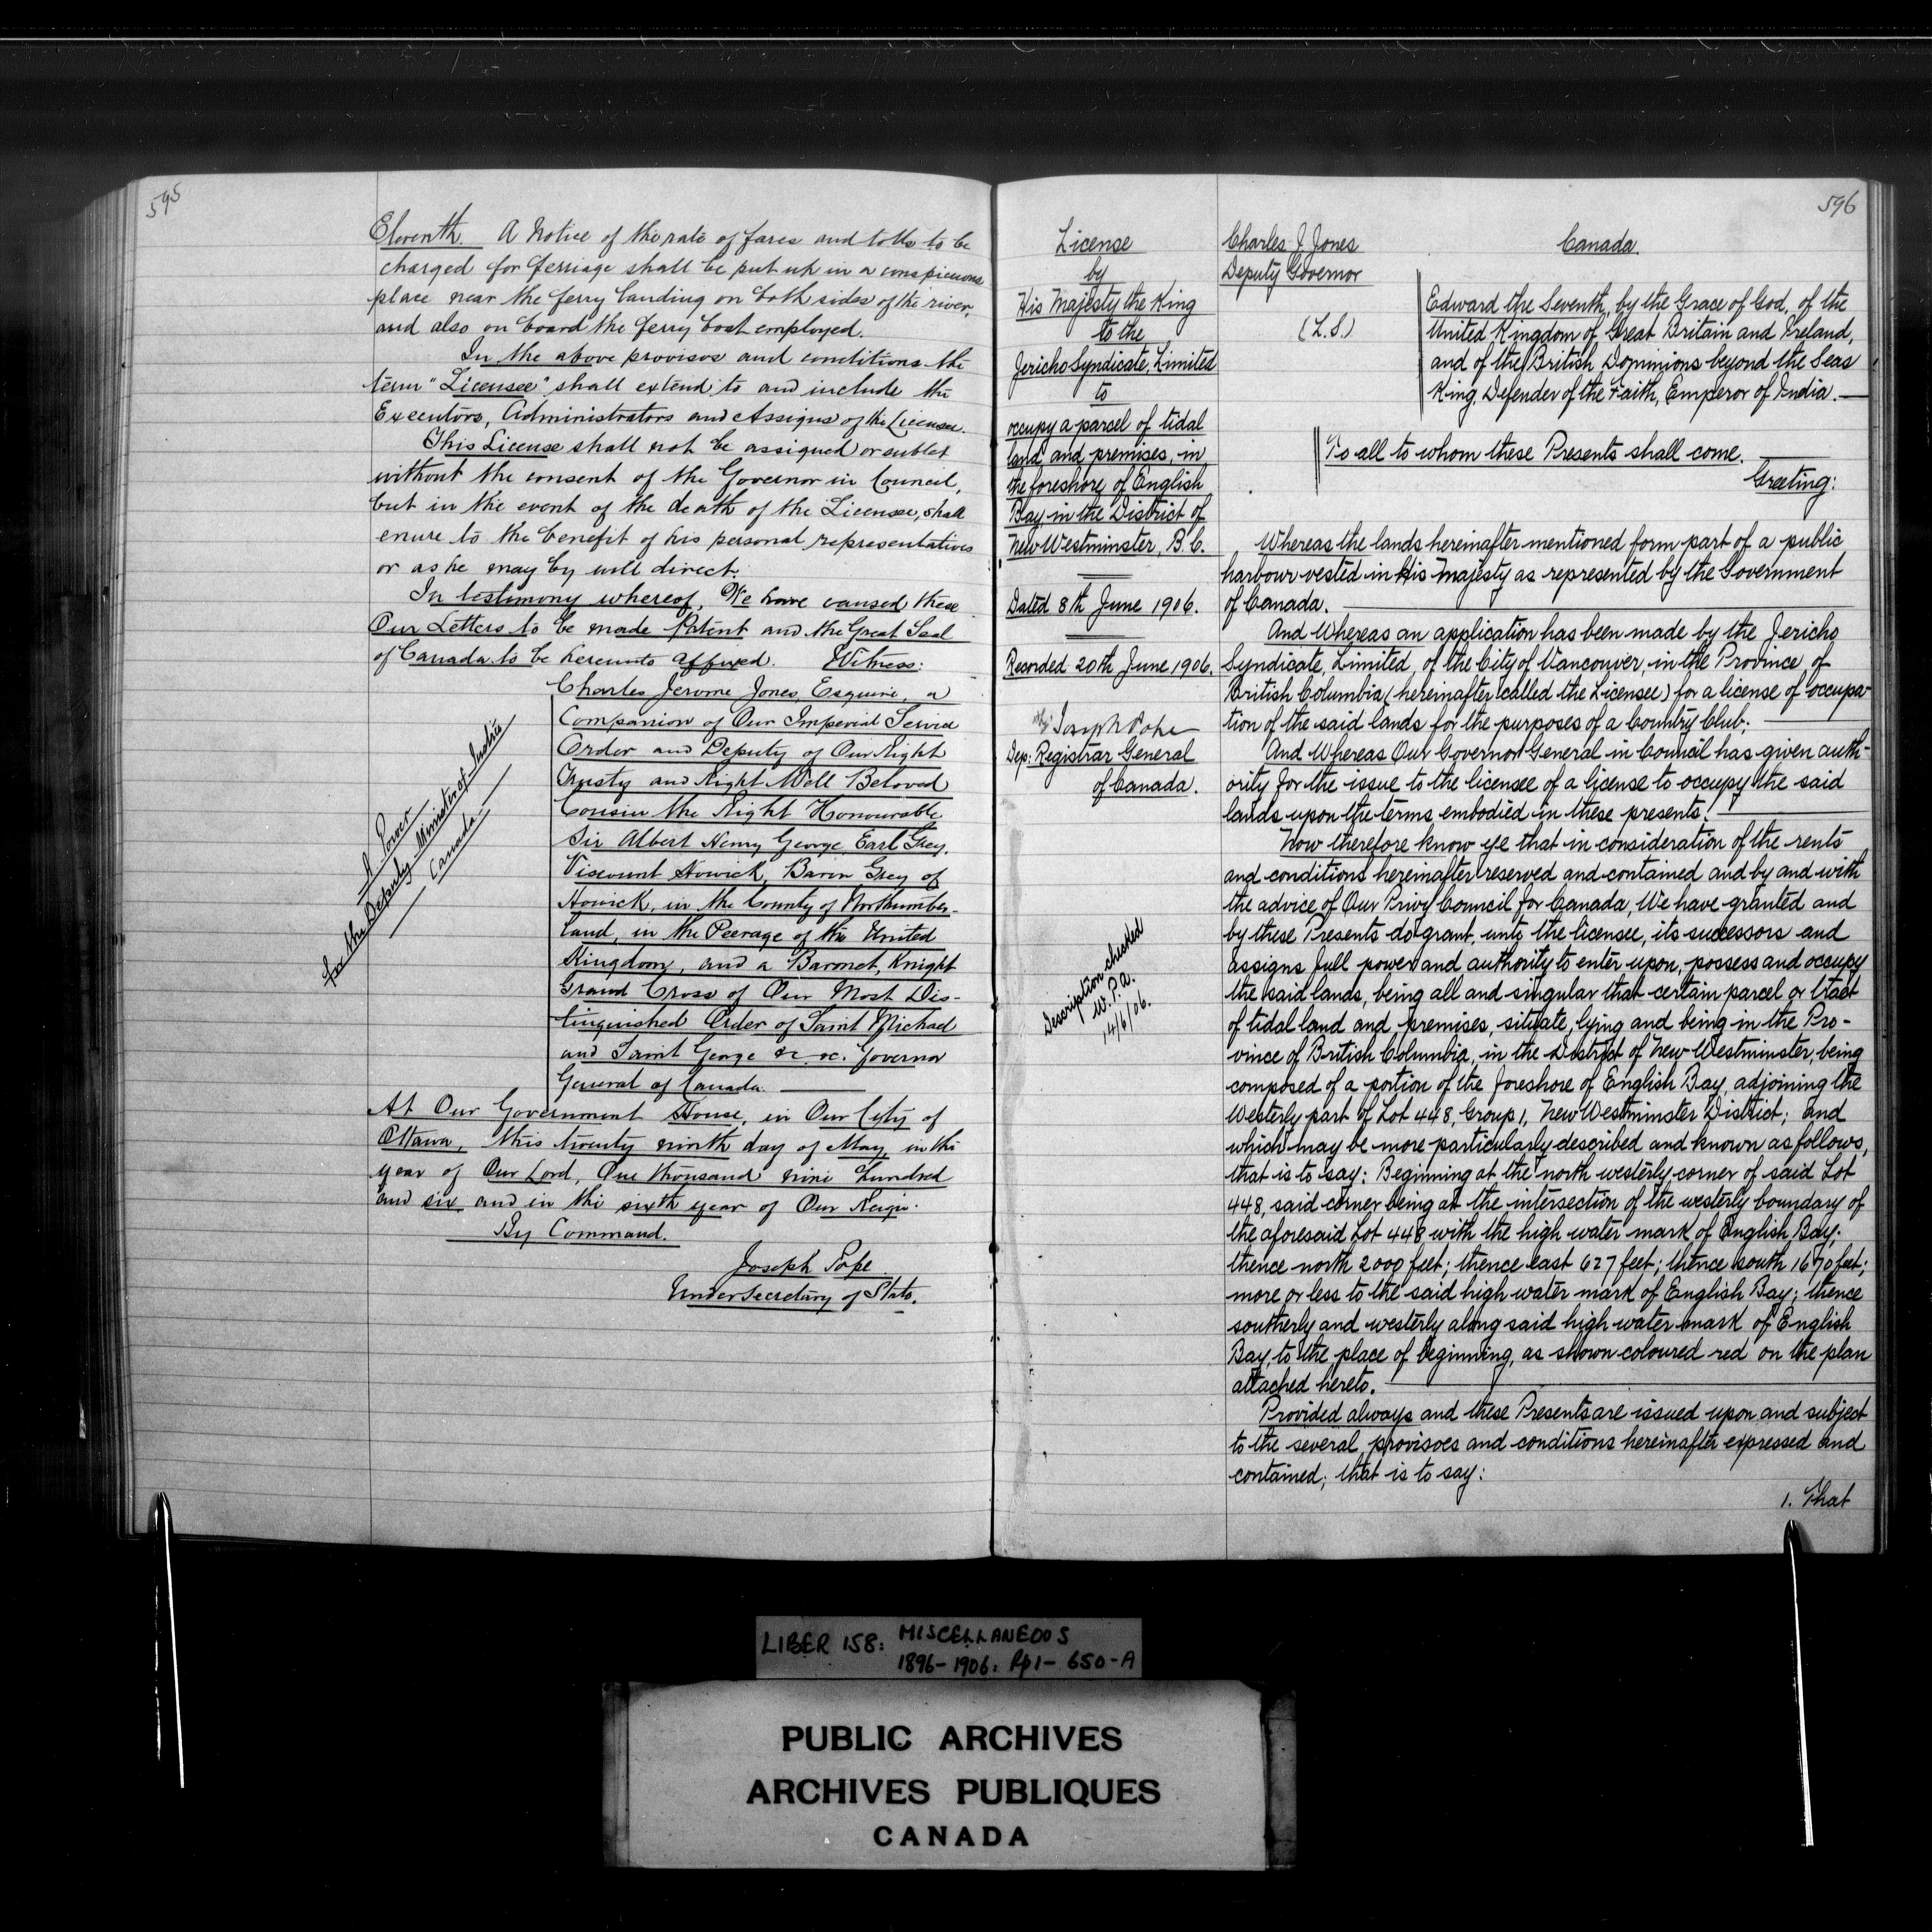 595
Eleventh. A Notice of the rate of fares and tolls to be
charged for ferriage shall be put up in a conspicuous
place near the ferry landing on both sides of the river,
and also on board the ferry boat employed.
In the above provisos and conditions the
term "Licensee" shall extend to and include the
Executors, Administrators and Assigns of the Licensee.
This License shall not be assigned or sublet
without the consent of the Governor in Council,
but in the event of the death of the Licensee, shall
enure to the benefit of his personal representatives
or as he may by will direct.
In testimony whereof, We have caused these
Our Letters to be made Patent and the Great Seal
of Canada to be hereunto affixed. Witness:
Charles Jerome Jones, Esquire, a
Companion of Our Imperial Service
Order and Deputy of Our Right
Trusty and Right Well Beloved
Cousin the Right Honourable
Sir Albert Henry George, Earl Grey,
Viscount Howick, Baron Grey of
Howick, in the County of Northumber-
land, in the Peerage of the United
Kingdom, and a Baronet, Knight
Grand Cross of Our Most Dis-
tinguished Order of Saint Michael
and Saint George &c &c. Governor
General of Canada.
A Power
for the Deputy Minister of Justice
Canada
At Our Government House, in Our City of
Ottawa, this twenty ninth day of May, in the
year of Our Lord, One thousand nine hundred
and six and in the sixth year of Our Reign.
By Command.
Joseph Pope
Under Secretary of State.
596
License
by
His Majesty the King
to the
Jericho Syndicate, Limited
to
occupy a parcel of tidal
land and premises, in
the foreshore of English
Bay, in the District of
New Westminster, B.C.
Dated 8th June 1906.
Recorded 20th June 1906.
Joseph Pope
Dep: Registrar General
of Canada.
Description checked
W.P.A.
14/6/06.
Charles J. Jones
Deputy Governor
Canada.
(L.S.)
Edward the Seventh, by the Grace of God, of the
United Kingdom of Great Britain and Ireland,
and of the British Dominions beyond the Seas
King, Defender of the Faith, Emperor of India.
To all to whom these Presents shall come.
Greeting:
Whereas the lands hereinafter mentioned form part of a public
harbour vested in His Majesty as represented by the Government
of Canada.
And Whereas an application has been made by the Jericho
Syndicate, Limited, of the City of Vancouver, in the Province of
British Columbia, (hereinafter called the Licensee) for a license of occupa-
tion of the said lands for the purposes of a Country Club;
And Whereas Our Governor General in Council has given auth-
ority for the issue to the licensee of a license to occupy the said
lands upon the terms embodied in these presents.
Now therefore know ye that in consideration of the rents
and conditions hereinafter reserved and contained and by and with
the advice of Our Privy Council for Canada, We have granted and
by these Presents do grant, unto the licensee, its successors and
assigns full power and authority to enter upon, possess and occupy
the said lands, being all and singular that certain parcel or tract
of tidal land and premises, situate, lying and being in the Pro-
vince of British Columbia, in the District of New Westminster, being
composed of a portion of the foreshore of English Bay, adjoining the
Westerly part of Lot 448, Group 1, New Westminster District; and
which may be more particularly described and known as follows,
that is to say: Beginning at the north westerly corner of said Lot
448, said corner being at the intersection of the westerly boundary of
the aforesaid Lot 448 with the high water mark of English Bay;
thence north 2000 feet; thence east 627 feet; thence south 1670 feet;
more or less to the said high water mark of English Bay; thence
southerly and westerly along said high water mark of English
Bay, to the place of beginning, as shown coloured red on the plan
attached hereto.
Provided always and these Presents are issued upon and subject
to the several provisoes and conditions hereinafter expressed and
contained; that is to say:
1. That
LIBER 158: MISCELLANEOUS
1896-1906: Pp 1-650-A
PUBLIC ARCHIVES
ARCHIVES PUBLIQUES
CANADA